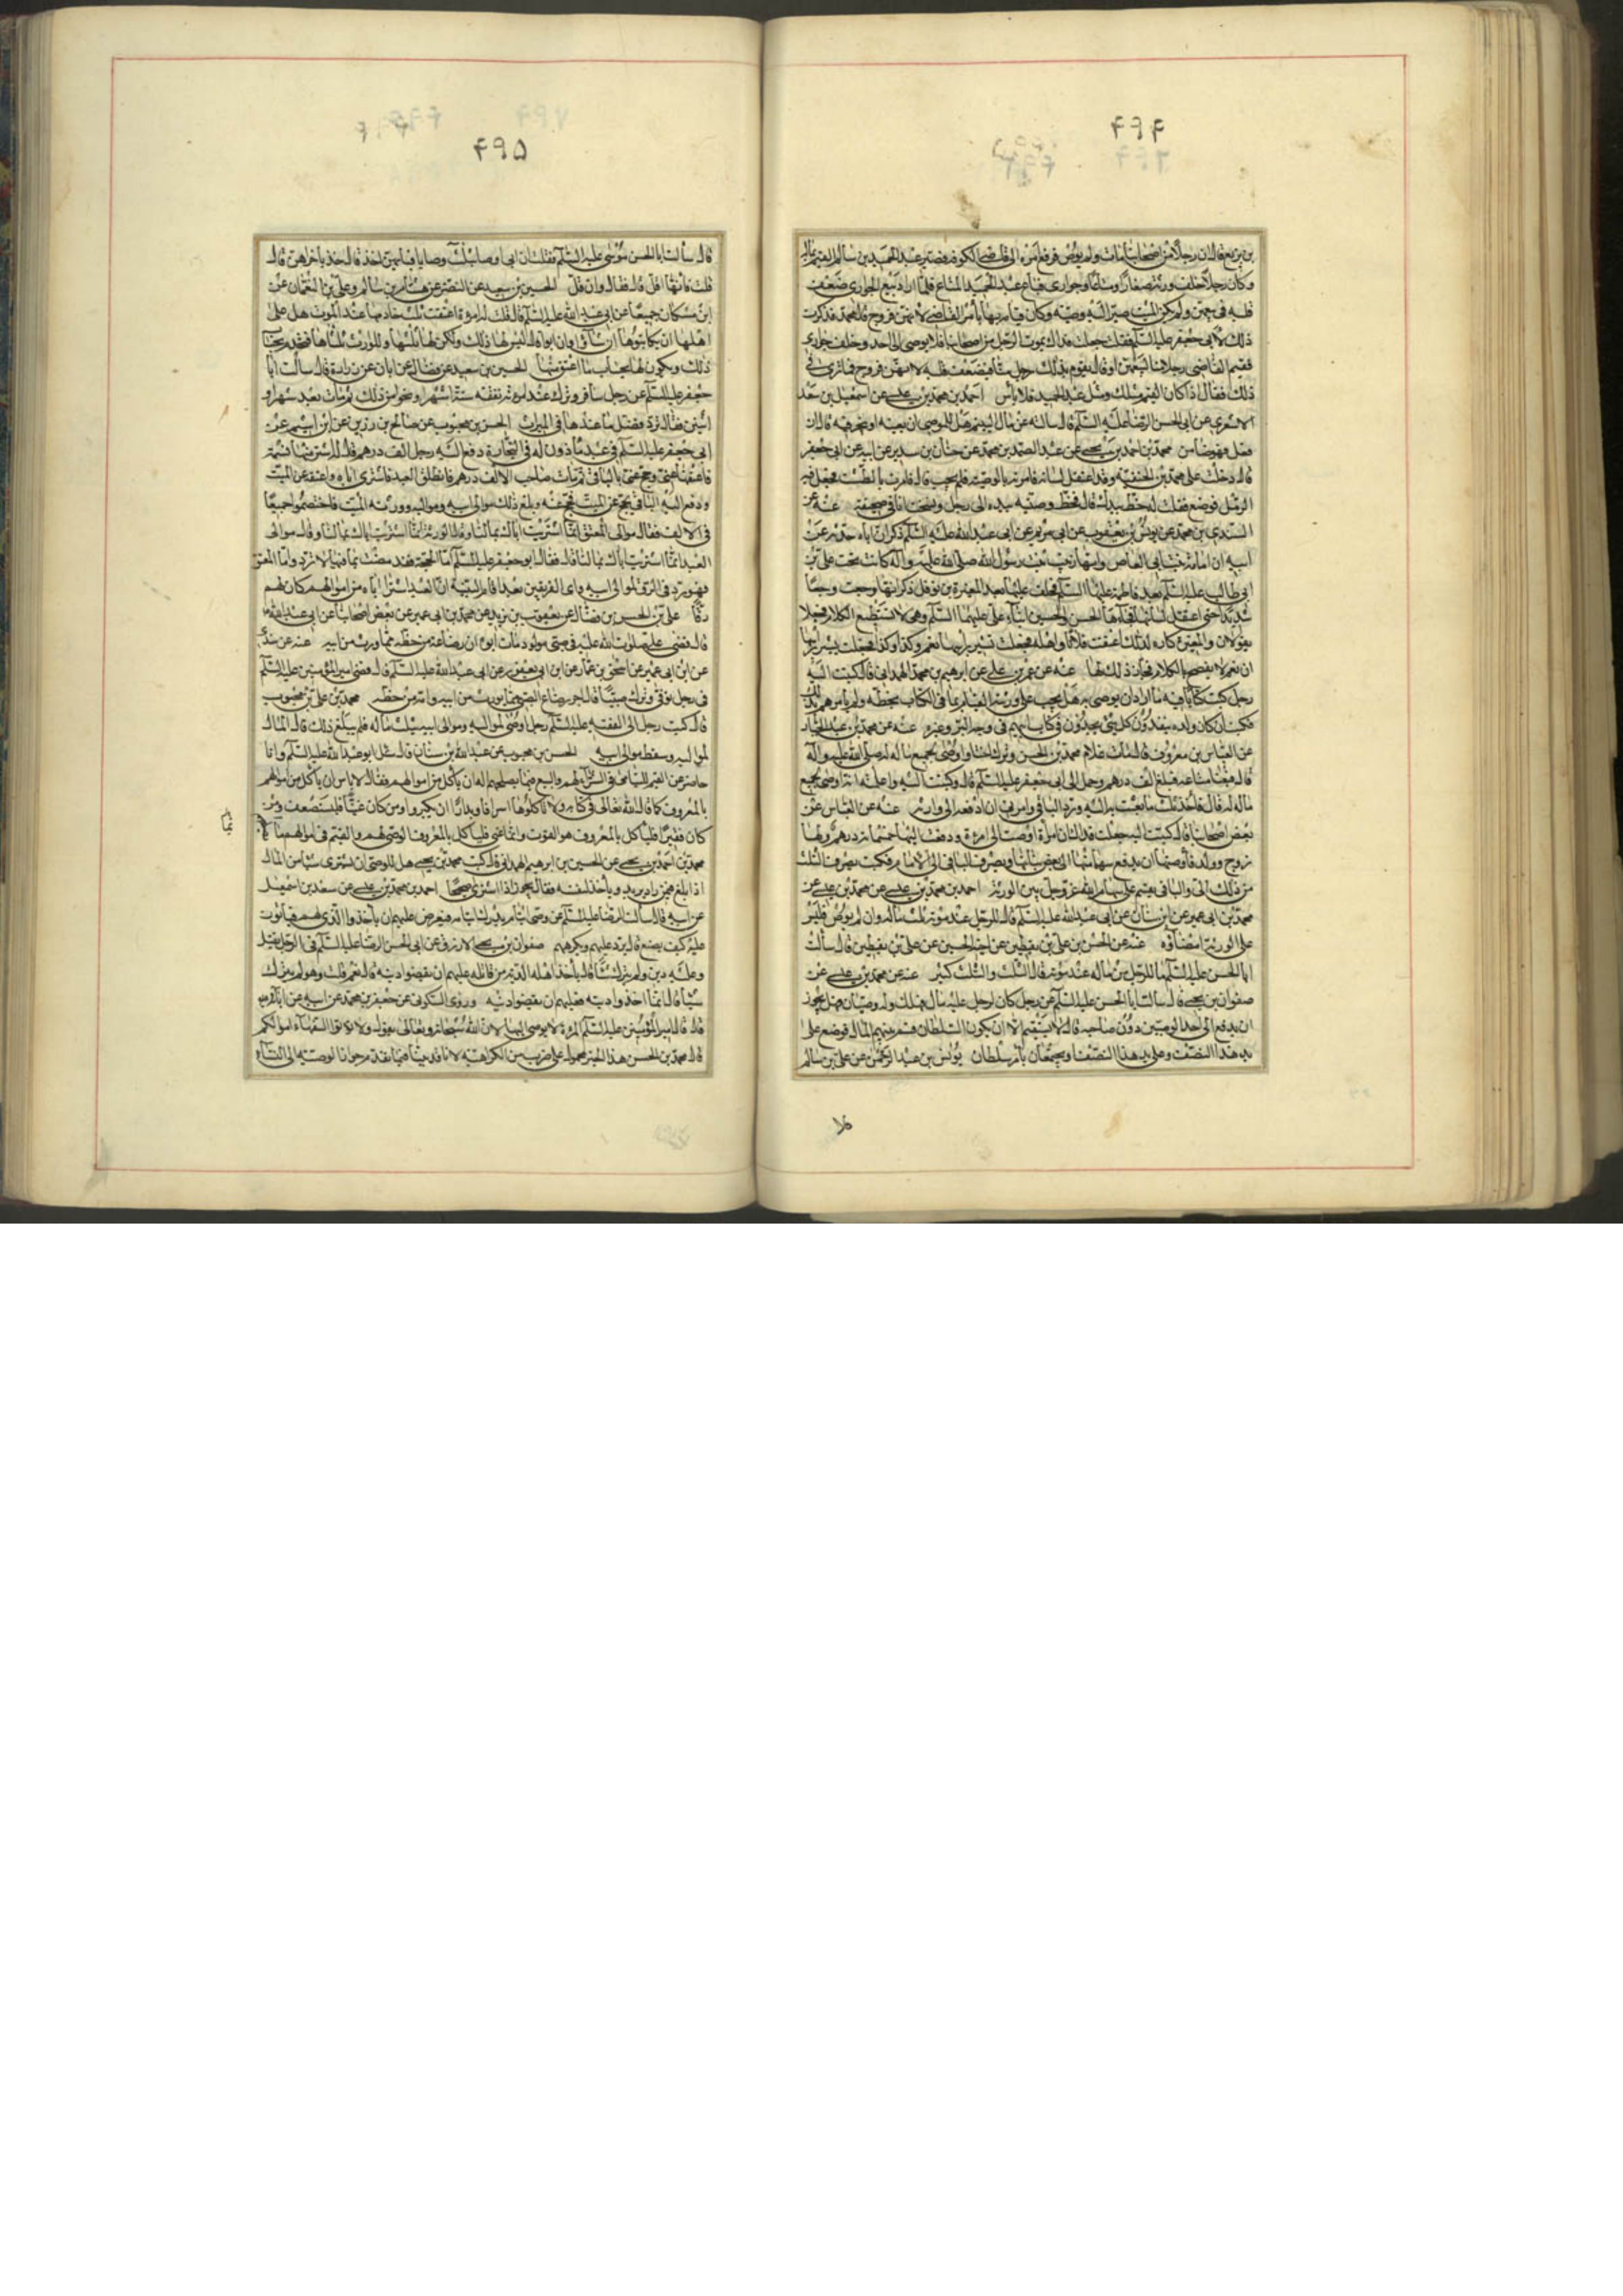 ۴۹۴
بن بزيع قال ان رجلا من اصحابنا مات ولم يوص فرفع امره الى قاضي الكوفة فصير عبد الحميد بن سالم القيم بماله
وكان رجلا خلف ورثة صغارا ومتاعا وجواري فباع عبد الحميد المتاع فلما اراد بيع الجواري ضعف
قلبه في بيعهن ولم يكن الميت صير اليه وصيته وكان قيامه بها بامر القاضي لانهن فروج قال محمد فذكرت
ذلك لابي جعفر عليه السلم فقلت جعلت فداك يموت الرجل من اصحابنا فلا يوصي الى احد وخلف جواري
فيقيم القاضي رجلا منا ليبيعهن او قال يقوم بذلك رجل منا فيضعف قلبه لانهن فروج فما ترى في
ذلك فقال اذا كان القيم مثلك ومثل عبد الحميد فلا باس احمد بن محمد بن عيسى عن اسمعيل بن سعد
الاشعري عن ابي الحسن الرضا عليه السلم قال سالته عن مال اليتيم هل للوصي ان يعينه او يتجر فيه قال ان
فعل فهو ضامن محمد بن احمد بن يحيى عن عبد الصمد بن محمد عن حنان بن سدير عن ابيه عن ابي جعفر
قال دخلت على محمد بن الحنفية وقد اعتقل لسانه فامرته بالوصية فلم يجب قال فامرت بالطشت فجعل فيه
الرمل فوضع فقلت له خط بيدك قال فخط وصيته بيده الى رجل ونسخت انا في صحيفة عنه عن
السندي بن محمد عن يونس بن يعقوب عن ابي مريم عن ابي عبد الله عليه السلم ذكر ان اباه حدثه عن
ابيه ان امامة بنت ابي العاص وامها زينب بنت رسول الله صلى الله عليه وآله كانت تحت علي بن
ابي طالب عليه السلم بعد فاطمة عليها السلم فخلف عليها بعد المغيرة بن نوفل ذكر انها وجعت وجعا
شديدا حتى اعتقل لسانها فجاءها الحسن والحسين ابناء علي عليهما السلم وهي لا تستطيع الكلام فجعلا
يقولان والمغيرة كاره لذلك اعتقت فلانا واهله فجعلت تشير براسها نعم وكذا وكذا فجعلت تشير براسها
ان نعم لا تفصح بالكلام فاجازا ذلك لها عنه عن عمر بن علي عن ابرهيم بن محمد الهمداني قال كتبت اليه
رجل كتب كتابا فيه ما اراد ان يوصي به هل يجب على ورثته القيام بما في الكتاب بخطه ولم يامرهم بذلك
فكتب ان كان ولده ينفذون كل شيء يجدون في كتاب ابيهم في وجه البر وغيره عنه عن محمد بن عبد الجبار
عن العباس بن معروف قال مات غلام محمد بن الحسن وترك اختا واوصى بجميع ماله له صلى الله عليه وآله
قال فبعنا متاعه فبلغ الف درهم وحمل الى ابي جعفر عليه السلم قال وكتبت اليه واعلمته انه اوصى بجميع
ماله له قال فاخذ ثلث ما بعثت به اليه ورد الباقي وامرني ان ادفعه الى وارثه عنه عن العباس عن
بعض اصحابنا قال كتبت اليه جعلت فداك ان امراة اوصت الى امراة ودفعت اليها خمسمائة درهم ولها
زوج وولد فاوصتها ان يدفع سهما منها الى بعض بناتها ويصرف الباقي الى الامام فكتب يصرف الثلث
من ذلك الي والباقي يقسم على سهام الله عز وجل بين الورثة احمد بن محمد بن عيسى عن محمد بن عيسى عن
محمد بن ابي عمير عن ابن سنان عن ابي عبد الله عليه السلم قال للرجل عند موته ثلث ماله وان لم يوص فليس
على الورثة امضاؤه عنه عن الحسن بن علي بن يقطين عن اخيه الحسين عن علي بن يقطين قال سالت
ابا الحسن عليه السلم ما للرجل من ماله عند موته قال الثلث والثلث كثير عنه عن محمد بن عيسى عن
صفوان بن يحيى قال سالت ابا الحسن عليه السلم عن رجل كان لرجل عليه مال فهلك وله وصيان فهل يجوز
ان يدفع الى احد الوصيين دون صاحبه قال لا يستقيم الا ان يكون السلطان قسم بينهم المال فوضع على
يد هذا النصف وعلى يد هذا النصف او يجتمعان بامر سلطان يونس بن عبد الرحمن عن علي بن سالم
۴۹۵
قال سالت ابا الحسن موسى عليه السلم فقلت ان ابي اوصى بثلث وصايا فبايهن اخذ قال خذ باخراهن قال
قلت فانها اقل قال فقال وان قل الحسين بن سعيد عن النضر عن هشام بن سالم وعلي بن النعمان عن
ابن مسكان جميعا عن ابي عبد الله عليه السلم قال قلت له امراة اعتقت ثلث خادمها عند الموت هل على
اهلها ان يكاتبوها ان شاؤا وان ابوا قال ليس لها ذلك ولكن لها ثلثها وللوارث ثلثاها فليستخدمها بحساب
ذلك ويكون لها بحساب ما اعتق منها الحسين بن سعيد عن فضالة عن ابان عن زرارة قال سالت ابا
جعفر عليه السلم عن رجل سافر وترك عند امراته نفقة ستة اشهر او نحوا من ذلك ثم مات بعد شهر او
اثنين فقال ترد فضل ما عندها في الميراث الحسن بن محبوب عن صالح بن رزين عن ابن اشيم عن
ابي جعفر عليه السلم في عبد ماذون له في التجارة دفع اليه رجل الف درهم فقال له اشتر منها نسمة
فاعتقها عني وحج عني بالباقي ثم مات صاحب الالف درهم فانطلق العبد فاشترى اباه واعتقه عن الميت
ودفع اليه الباقي يحج عن الميت فحج عنه وبلغ ذلك موالي ابيه ومواليه وورثة الميت فاختصموا جميعا
في الالف فقال موالي المعتق انما اشتريت اباك بمالنا وقال الورثة انما اشتريت اباك بمالنا وقال موالي
العبد انما اشتريت اباك بمالنا قال فقال ابو جعفر عليه السلم اما الحجة فقد مضت بما فيها لا ترد واما المعتق
فهو رد في الرق لموالي ابيه واي الفريقين بعد اقام البينة ان العبد اشترى اباه من اموالهم كان لهم
رقا علي بن الحسن بن فضال عن يعقوب بن يزيد عن محمد بن ابي عمير عن بعض اصحابنا عن ابي عبد الله
قال قضى علي صلوات الله عليه في صبي مولود مات ابوه ان رضاعه من حظه مما ورث من ابيه عنه عن سندي
عن ابن ابي عمير عن اسحق بن عمار عن ابن ابي يعفور عن ابي عبد الله عليه السلم قال قضى امير المؤمنين عليه السلم
في رجل توفي وترك صبيا قال اجر رضاع الصبي مما يورث من ابيه وامه من حظه محمد بن علي بن محبوب
قال كتب رجل الى الفقيه عليه السلم رجل اوصى لمواليه وموالي ابيه بثلث ماله فلم يبلغ ذلك قال المال
لمواليه وسقط موالي ابيه الحسن بن محبوب عن عبد الله بن سنان قال سئل ابو عبد الله عليه السلم وانا
حاضر عن القيم لليتامى في الشراء لهم والبيع فيما يصلحهم اله ان ياكل من اموالهم فقال لا باس ان ياكل من اموالهم
بالمعروف كما قال الله تعالى في كتابه ولا تاكلوها اسرافا وبدارا ان يكبروا ومن كان غنيا فليستعفف ومن
كان فقيرا فلياكل بالمعروف هو القوت وانما عنى فلياكل بالمعروف الوصي لهم والقيم في اموالهم
محمد بن احمد بن يحيى عن الحسين بن ابرهيم الهمداني قال كتب محمد بن يحيى هل للوصي ان يشتري شيئا من المال
اذا بيع فيمن زاد يزيد وياخذ لنفسه فقال يجوز اذا اشترى صحيحا احمد بن محمد بن عيسى عن سعد بن اسمعيل
عن ابيه قال سالت الرضا عليه السلم عن وصي ايتام يدرك ايتامه فيعرض عليهم ان ياخذوا الذي لهم فيابون
عليه كيف يصنع قال يرد عليهم ويكرههم صفوان بن يحيى الازرق عن ابي الحسن الرضا عليه السلم في الرجل يقتل
وعليه دين ولم يترك شيئا قال ياخذ اهله الدية من قاتله عليهم ان يقضوا دينه قال نعم قلت وهو لم يترك
شيئا قال انما اخذوا ديته فعليهم ان يقضوا دينه وروى السكوني عن جعفر بن محمد عن ابيه عن ابائه
قال قال امير المؤمنين عليه السلم المراة لا يوصى اليها لان الله سبحانه وتعالى يقول ولا تؤتوا السفهاء اموالكم
قال محمد بن الحسن هذا الخبر محمول على ضرب من الكراهية لانا قد بينا فيما تقدم جواز الوصية الى النساء